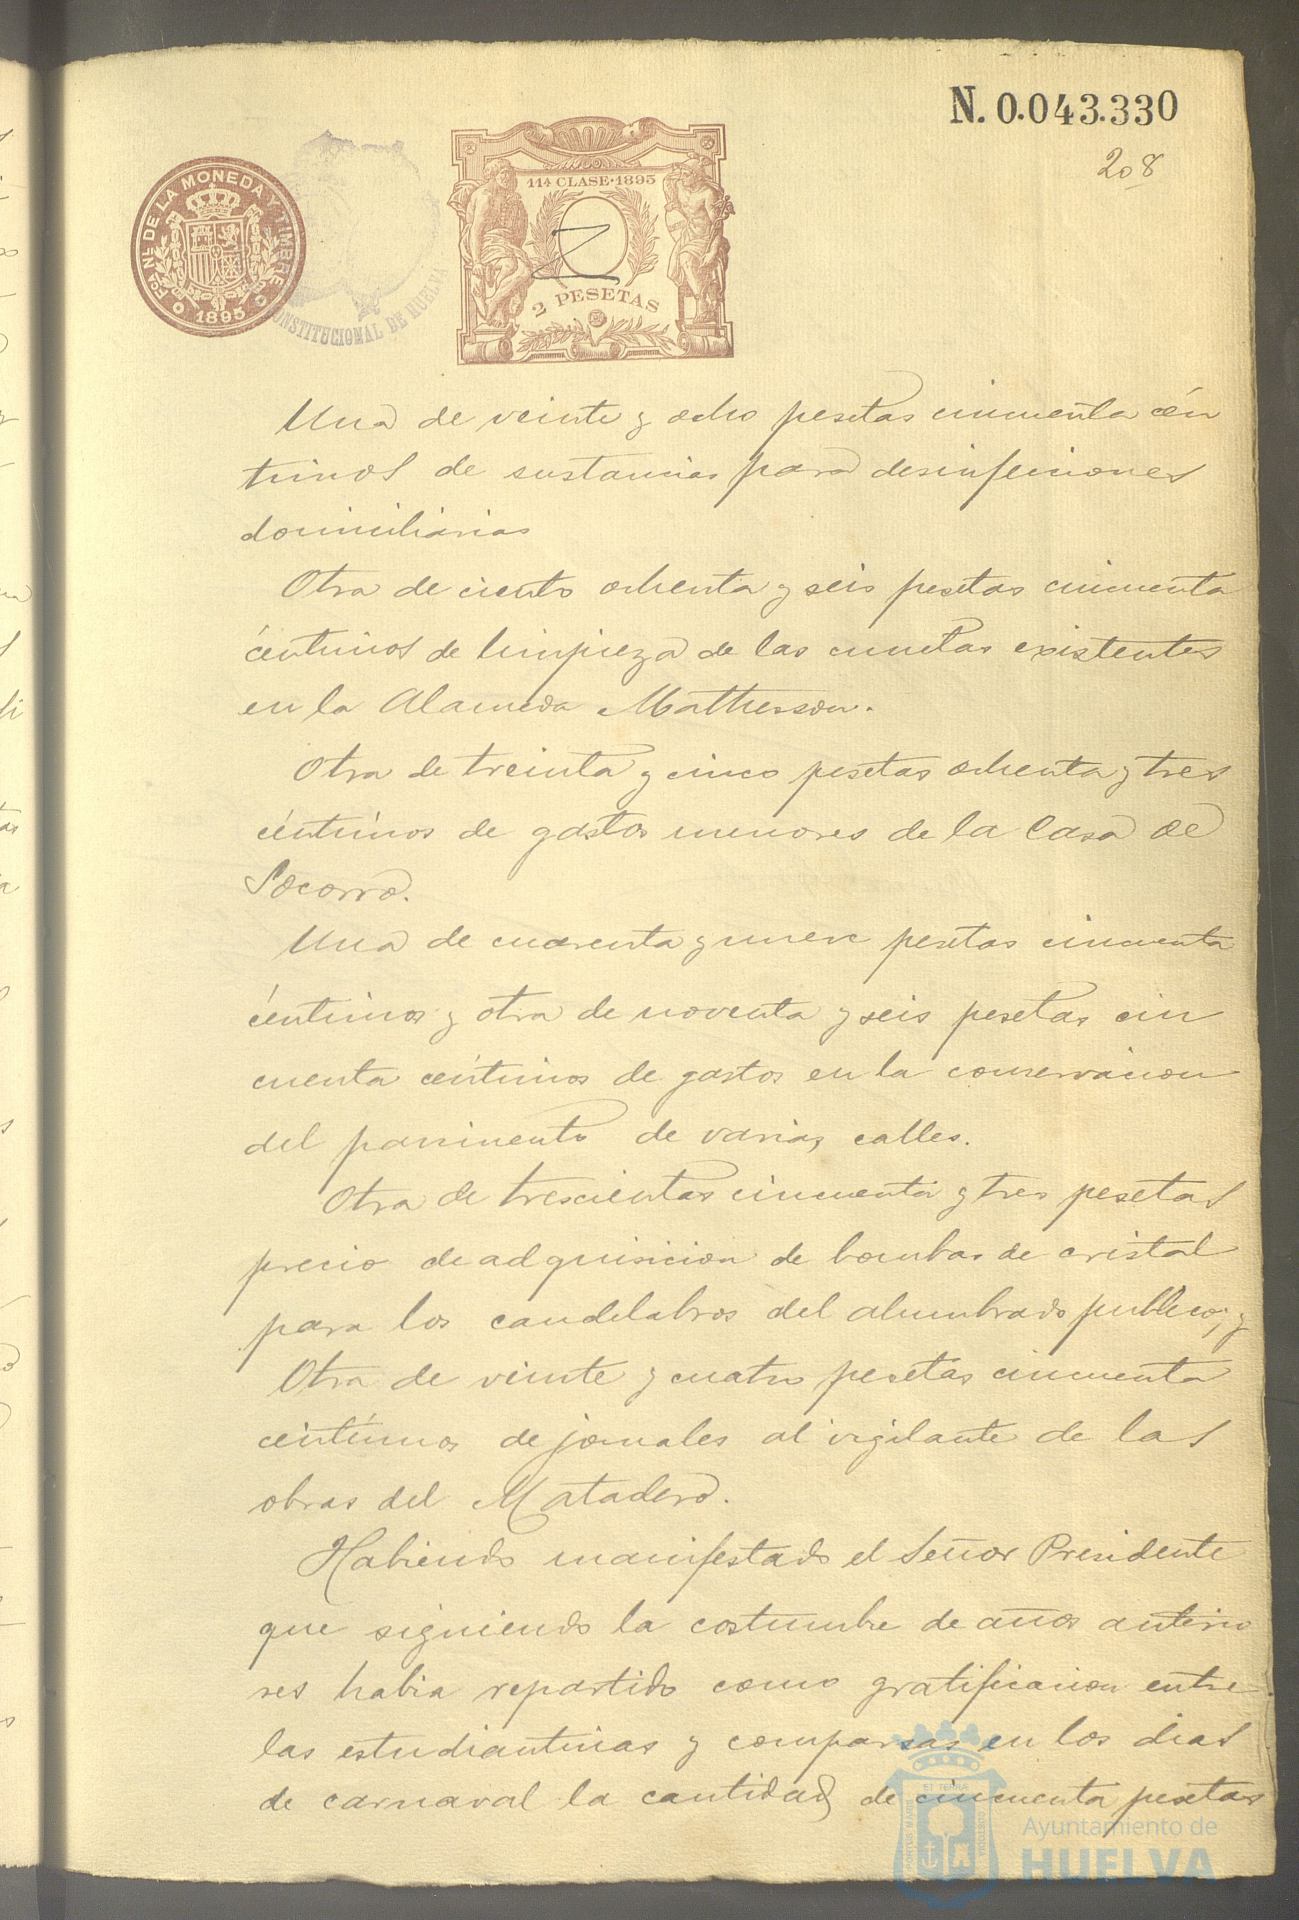 N. 0.043.330
208
FCA. NL. DE LA MONEDA Y TIMBRE
1895
CONSTITUCIONAL DE HUELVA
11ª CLASE·1895
2 PESETAS
Una de veinte y ocho pesetas cincuenta cén
timos de sustancias para desinfecciones
domiciliarias
Otra de ciento ochenta y seis pesetas cincuenta
céntimos de limpieza de las cunetas existentes
en la Alameda Mathesson.
Otra de treinta y cinco pesetas ochenta y tres
céntimos de gastos menores de la Casa de
Socorro.
Una de cuarenta y nueve pesetas cincuenta
céntimos y otra de noventa y seis pesetas cin
cuenta céntimos de gastos en la conservacion
del pavimento de varias calles.
Otra de trescientas cincuenta y tres pesetas
precio de adquisicion de bombas de cristal
para los candelabros del alumbrado publico; y
Otra de veinte y cuatro pesetas cincuenta
céntimos de jornales al vigilante de las
obras del Matadero.
Habiendo manifestado el Señor Presidente
que siguiendo la costumbre de años anterio
res habia repartido como gratificacion entre
las estudiantinas y comparsas en los dias
de carnaval la cantidad de cincuenta pesetas
Ayuntamiento de
HUELVA